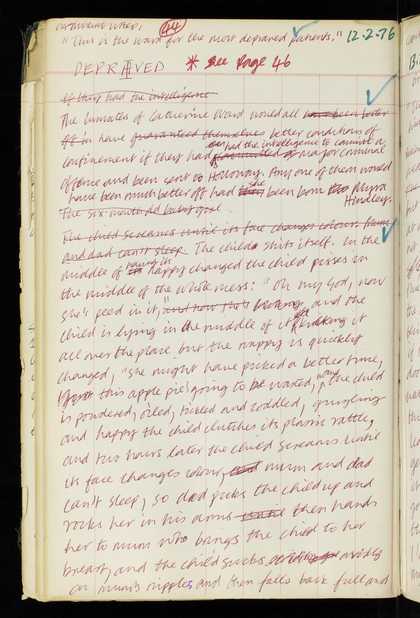 44
"This is the ward for the most depraved patients." 12.2.76
DEPRAVED * see Page 46
If they had the intelligence
The inmates of Catherine Ward would all have been better
off in have guaranteed themselves better conditions of
confinement if they had had the intelligence to commit a major criminal
offence and been sent to Holloway. Any one of them would
have been much better off had she been born Myra
Hindley.
The six month old baby girl
The child screams until its face changes colour, mum
and dad can't sleep. The child shits itself. In the
middle of having its nappy changed the child pisses in
the middle of the whole mess: "Oh my God, now
she's peed in it," and now she's and the
child is lying in the middle of it kicking it
all over the place but the nappy is quickly
changed, "she might have picked a better time,
this apple pie's going to be ruined," now the child
is powdered, oiled, tickled and coddled, gurgling
and happy the child clutches its plastic rattle,
and two hours later the child screams until
its face changes colour, mum and dad
can't sleep, so dad picks the child up and
rocks her in his arms then hands
her to mum who brings the child to her
breast, and the child sucks avidly
on mum's nipples and then falls back full and